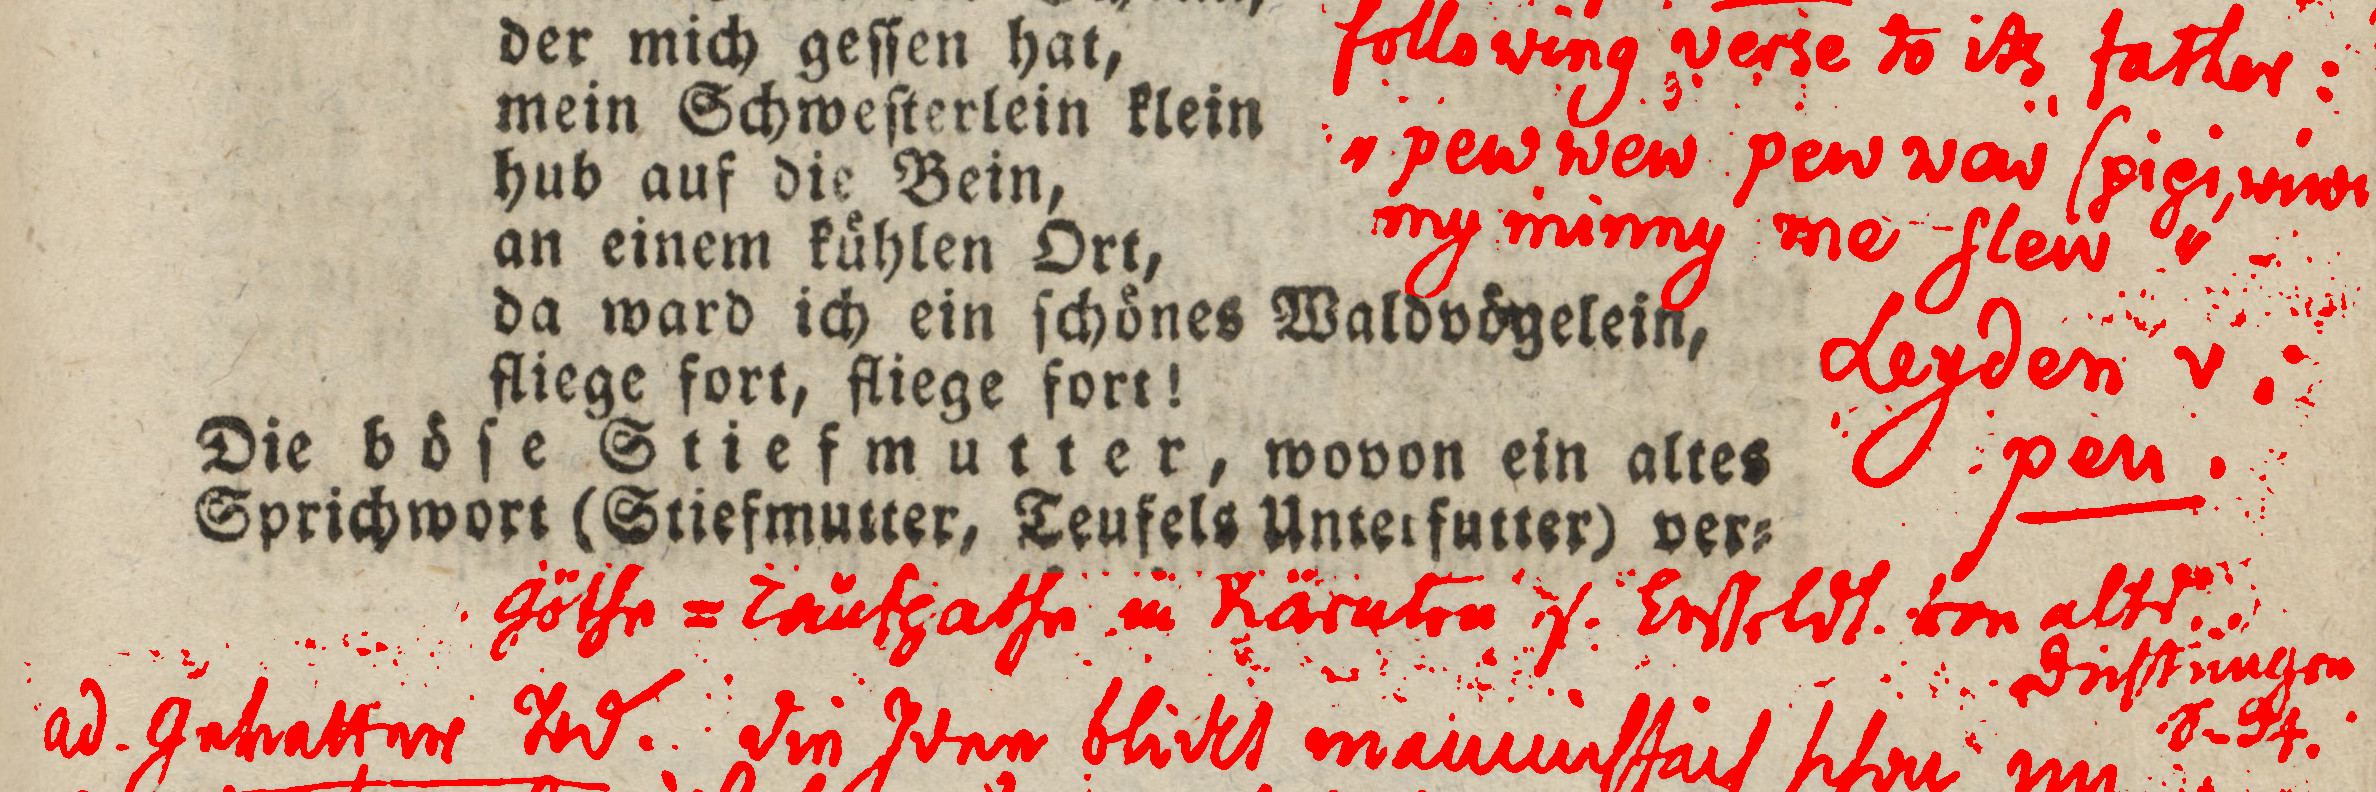 der mich geſſen hat,
mein Schweſterlein klein
hub auf die Bein,
an einem kuͤhlen Ort,
da ward ich ein ſchoͤnes Waldvoͤgelein,
fliege fort, fliege fort!
Die boͤſe Stiefmutter, wovon ein altes
Sprichwort (Stiefmutter, Teufels Unterfutter) ver⸗
following verse to its father:
"pew wew pew wow (pigi, wiwi
my minny me slew"
Leyden v.
pen.
Göthe = Taufpathe in Kärnten
von altd.
Dichtungen
S. 94.
ad. Gevatter Tod. die Idee blickt schon